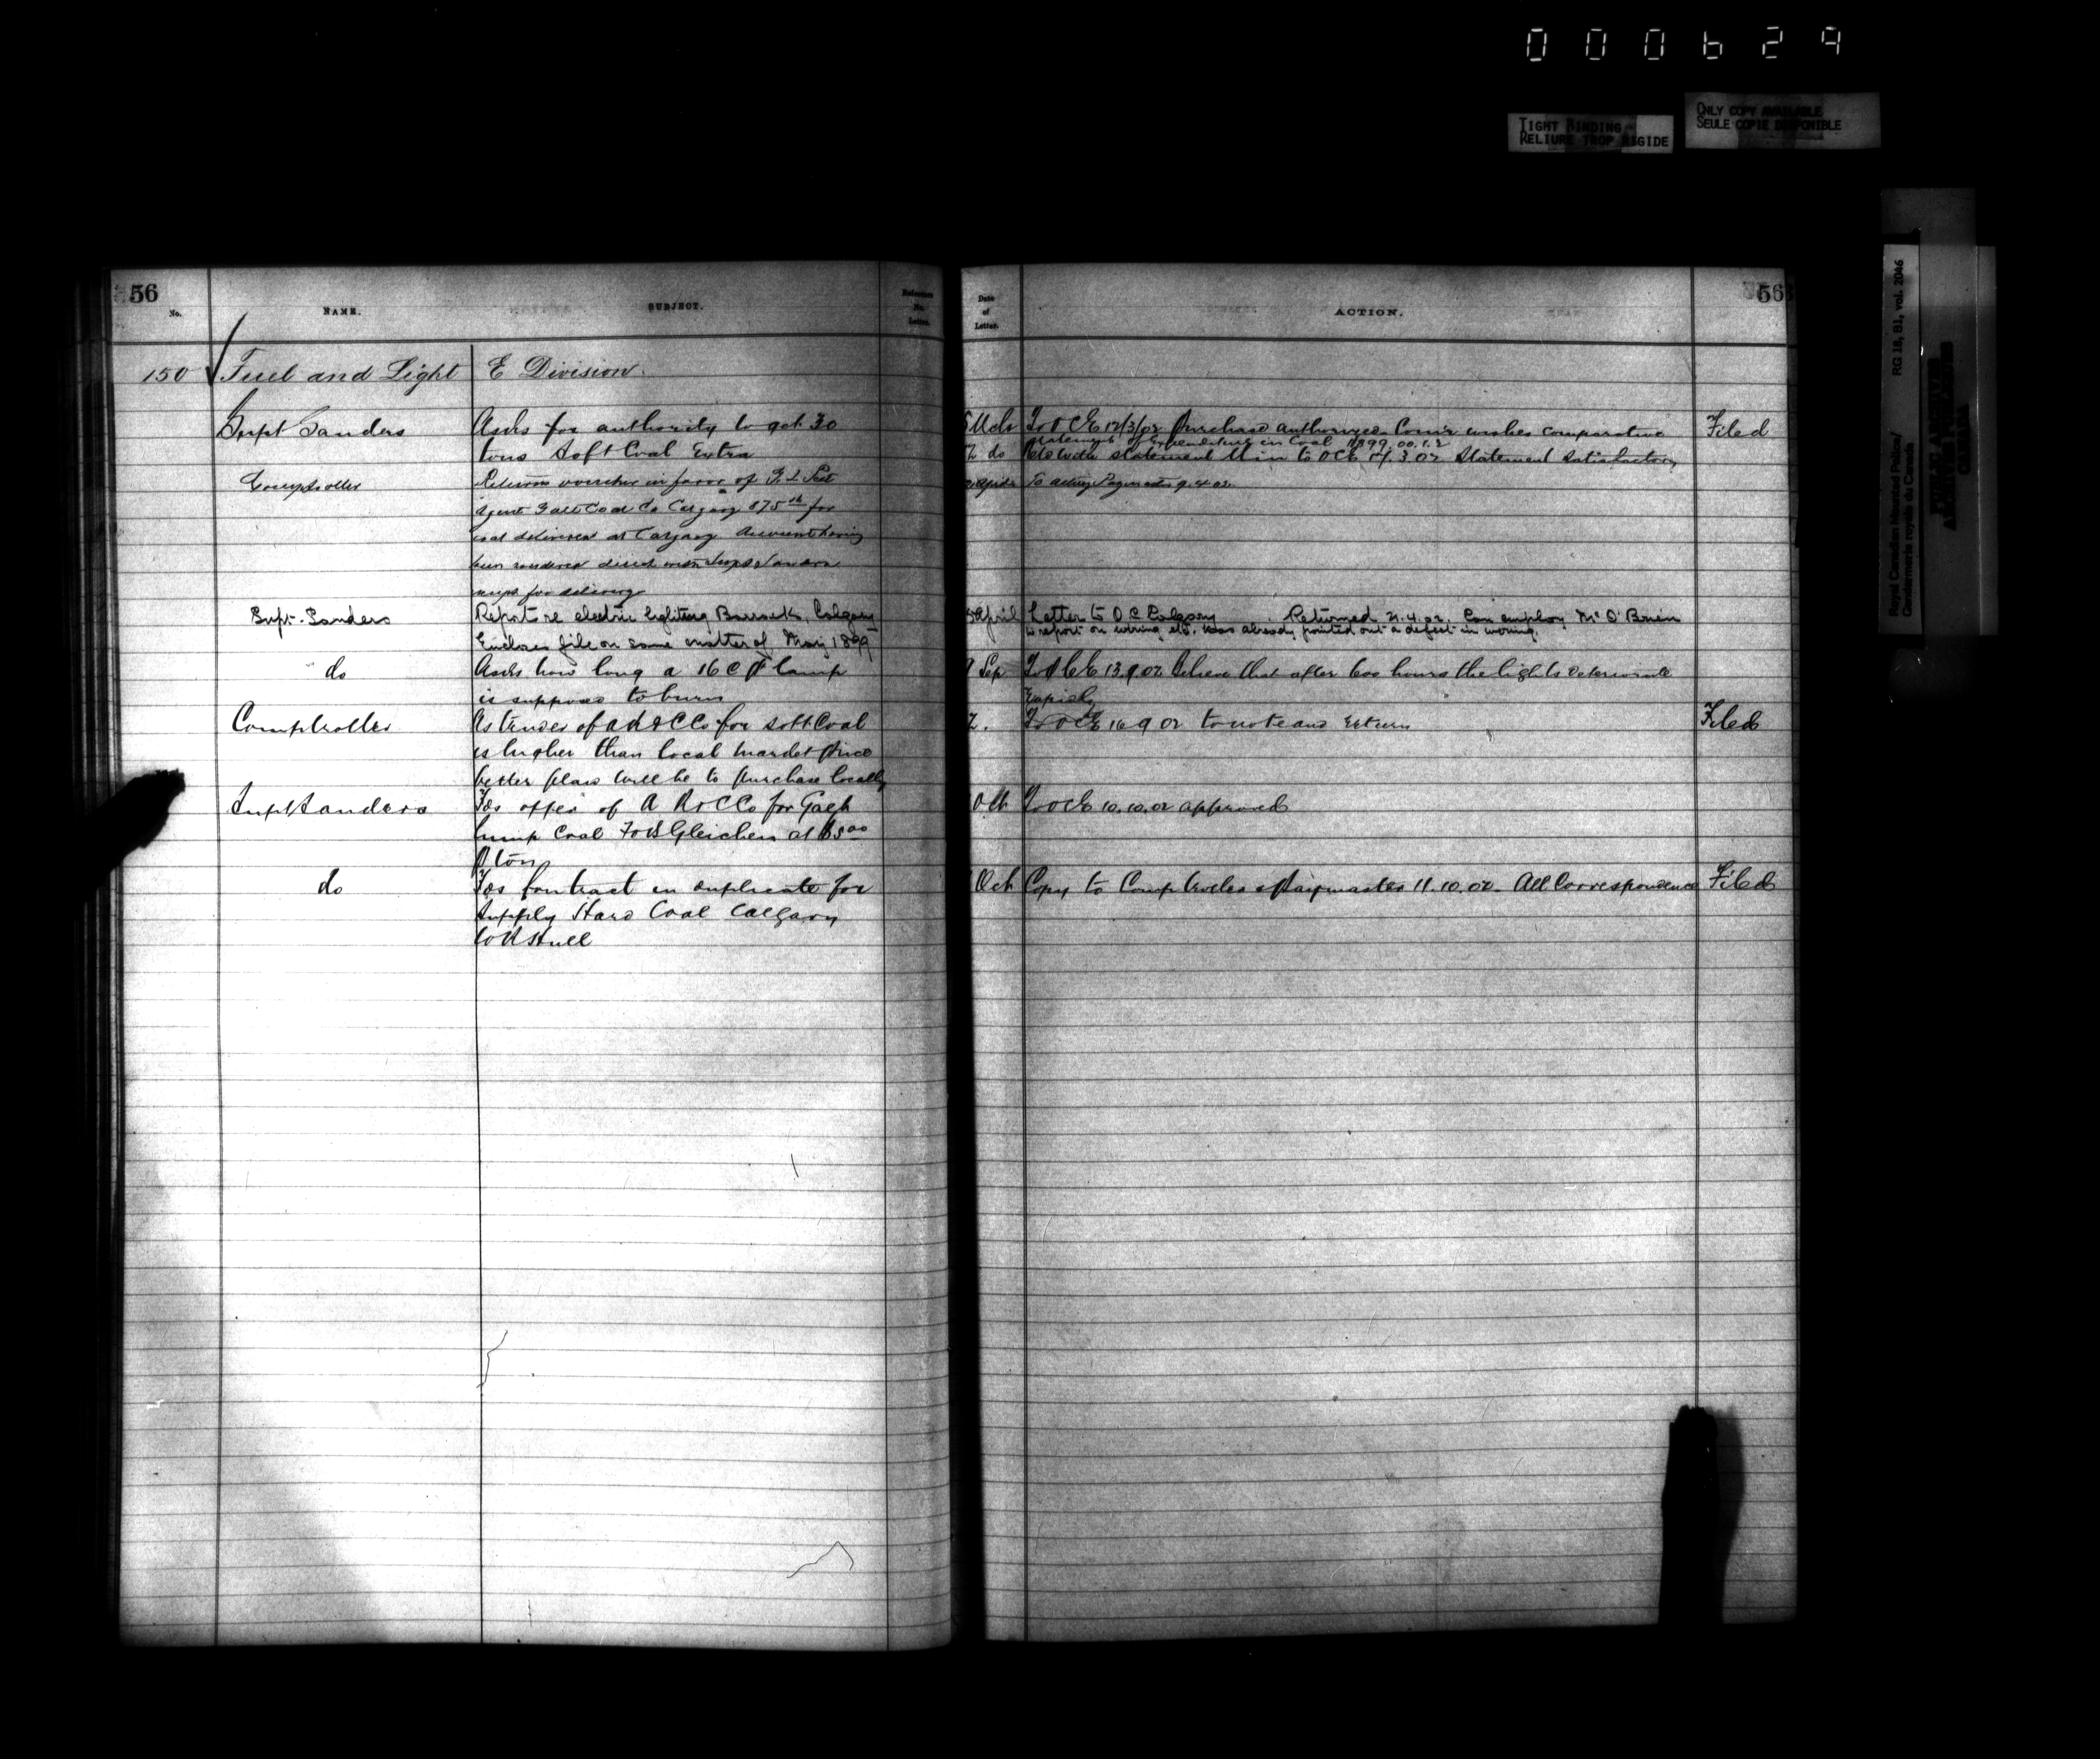 000629
TIGHT BINDING
RELIURE TROP RIGIDE
ONLY COPY AVAILABLE
SEULE COPIE DISPONIBLE
Royal Canadian Mounted Police/
Gendarmerie royale du Canada
RG 18, B1, vol. 2046
PUBLIC ARCHIVES
ARCHIVES PUBLIQUES
CANADA
56
No.
NAME.
SUBJECT.
Reference
No.
Letter.
150 Fuel and Light E Division
Supt Sanders Asks for authority to get 30
tons Soft Coal Extra
Comptroller Returns voucher in favor of
Agent Galt Coal Co Calgary 875 for
coal delivered at Calgary Account having
been rendered direct
for delivery
Supt. Sanders Report re electric lighting Barracks, Calgary
Encloses file on same matter of May 1899
do Asks how long a 16 C P lamp
is supposed to burn
Comptroller As tender of A R & C Co for soft Coal
is higher than local market price
better plan will be to purchase locally
Supt Sanders Fds offer of A R & C Co for Galt
lump Coal FOB Gleichen at $5.00
P ton
do Fds Contract in duplicate for
Supply Hard Coal Calgary
Hull
Date
of
Letter.
ACTION.
56
Mch To OC E 12/3/02 Purchase authorized Comr wishes comparative Filed
statement of Expenditure in Coal 1899.00.1.2
do statement to OC E 3.02 Statement satisfactory
April To acting Paymaster 9.4.02
April Letter to O.C. Calgary Returned 21.4.02. Can employ Mr O'Brien
to report on wiring etc. Has already pointed out a defect in wiring.
9 Sep To OC E 13.9.02 Believe that after 600 hours the lights deteriorate
rapidly
To OC E 16 9 02 to note and return Filed
Oct To OC E 10.10.02 approved
Oct Copy to Comptroller & Paymaster 11.10.02 - All Correspondence Filed